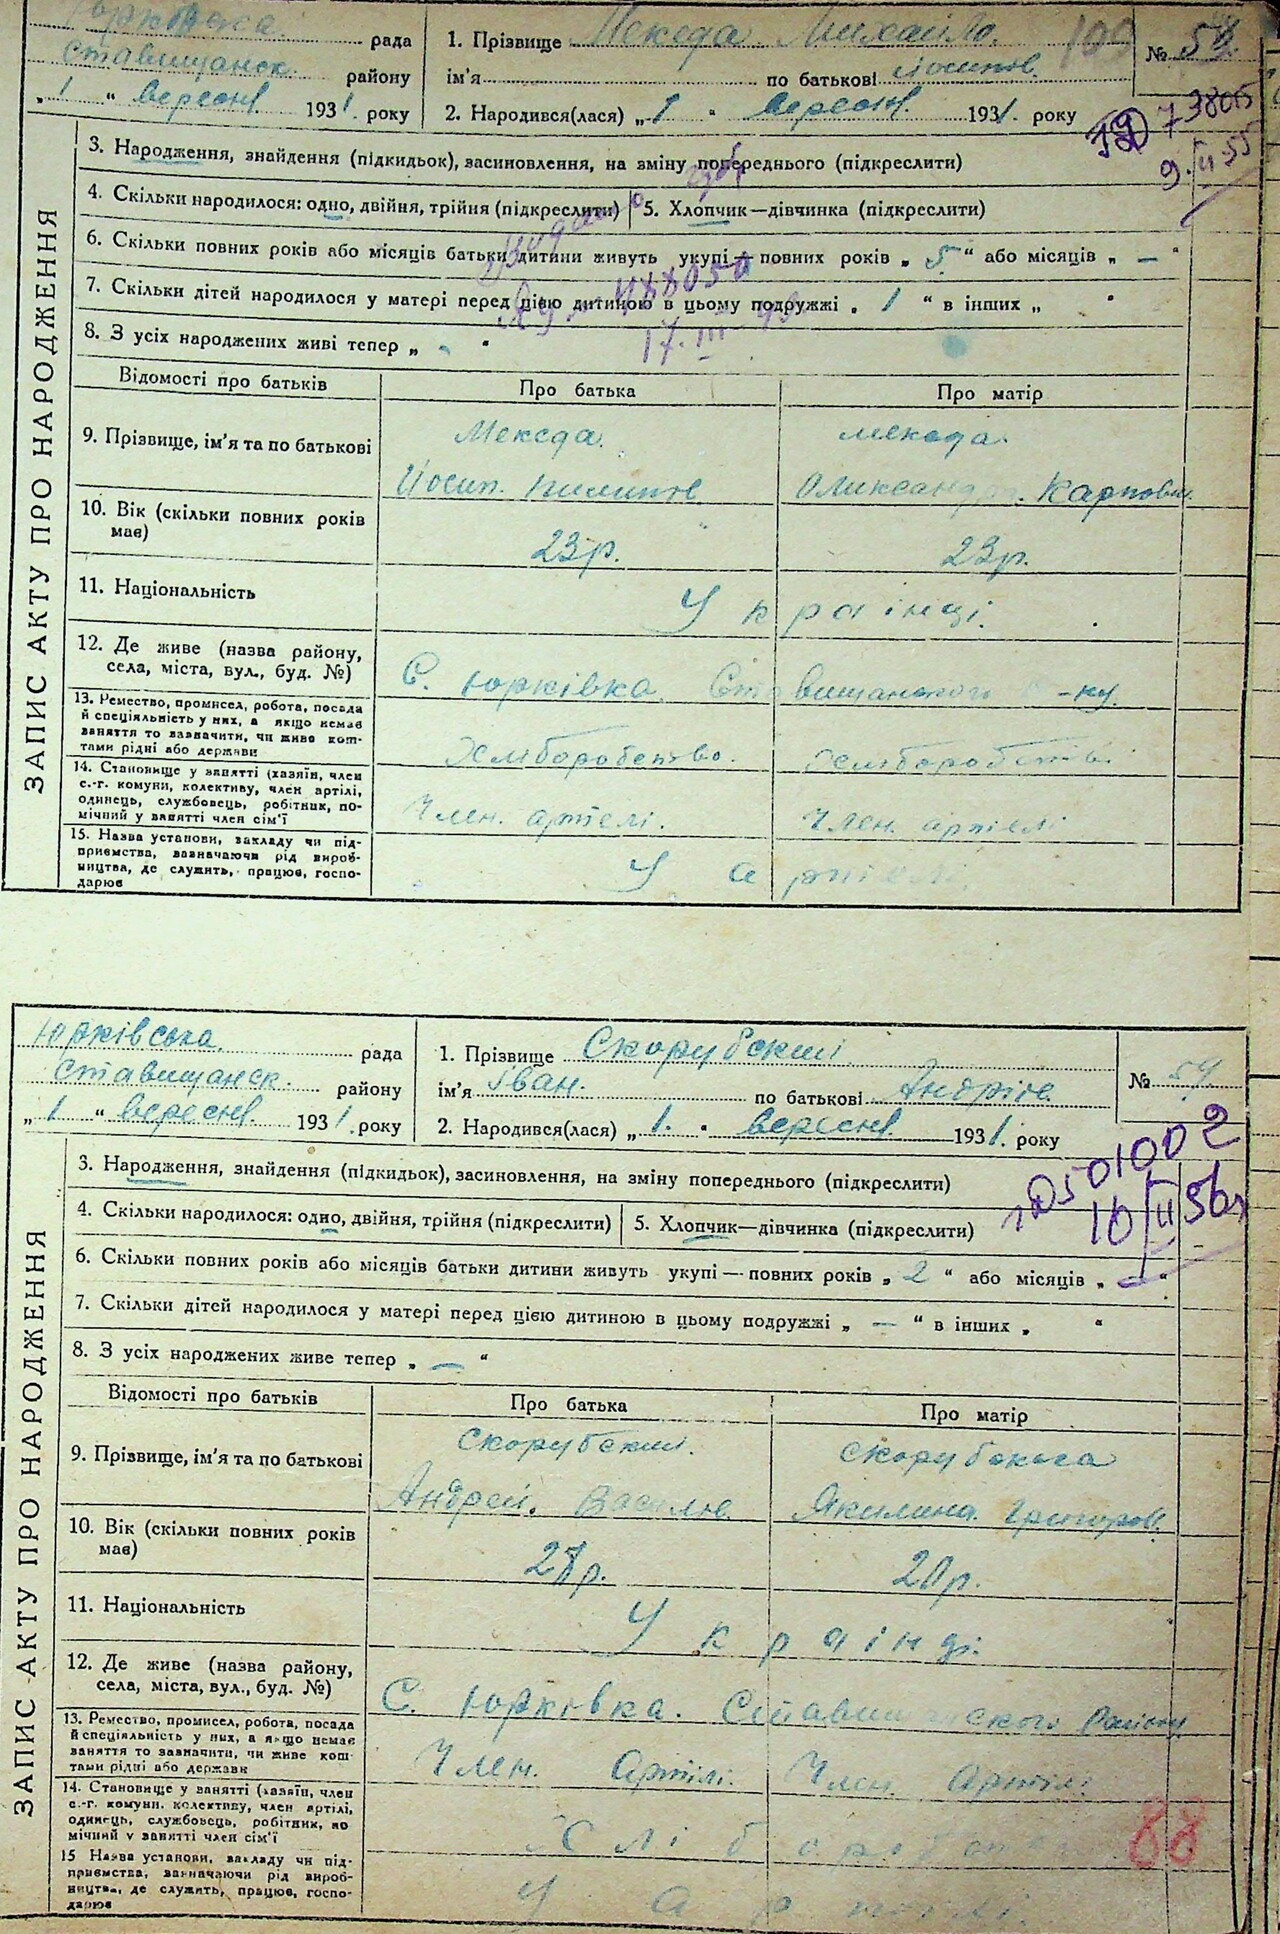 рада
Ставищанск. району
„ 1 “ вересня 1931 року
1. Прізвище Мекеда Михайло.
ім’я по батькові Йосипов.
2. Народився(лася) „ 1 “ вересня 1931. року
№ 53.
3. Народження, знайдення (підкидьок), засиновлення, на зміну попереднього (підкреслити)
4. Скільки народилося: одно, двійня, трійня (підкреслити)
5. Хлопчик—дівчинка (підкреслити)
6. Скільки повних років або місяців батьки дитини живуть укупі — повних років „ 5 “ або місяців „ — “
7. Скільки дітей народилося у матері перед цією дитиною в цьому подружжі „ 1 “ в інших „ “
8. З усіх народжених живі тепер „ - “
17. III
9. II 55
ЗАПИС АКТУ ПРО НАРОДЖЕННЯ
Відомості про батьків
Про батька
Про матір
9. Прізвище, ім’я та по батькові
Мекеда.
Йосип. Пилипов.
мекеда.
Олександра. Карповн.
10. Вік (скільки повних років має)
23р.
23р.
11. Національність
Українці.
12. Де живе (назва району, села, міста, вул., буд. №)
С. Юрківка. Ставищанського Р-ну.
13. Ремество, промисел, робота, посада
й спеціяльність у них, а якщо немає
заняття то зазначити, чи живе кош-
тами рідні або держави
Хліборобство.
Хліборобств.
14. Становище у занятті (хазяїн, член
с.-г. комуни, колективу, член артілі,
одинець, службовець, робітник, по-
мічний у занятті член сім’ї
Член. артелі.
Член. артелі
15. Назва установи, закладу чи під-
приємства, зазначаючи рід вироб-
ництва, де служить, працює, госпо-
дарює
У артелі.
Юрківська. рада
Ставищанск. району
„ 1 “ вересня. 1931. року
1. Прізвище Скорубский
ім’я Іван. по батькові Андріїв.
2. Народився(лася) „ 1. “ вересня 1931. року
№ 54.
1Д501002
10/II 56р
3. Народження, знайдення (підкидьок), засиновлення, на зміну попереднього (підкреслити)
4. Скільки народилося: одно, двійня, трійня (підкреслити)
5. Хлопчик—дівчинка (підкреслити)
6. Скільки повних років або місяців батьки дитини живуть укупі — повних років „ 2 “ або місяців „ — “
7. Скільки дітей народилося у матері перед цією дитиною в цьому подружжі „ — “ в інших „ “
8. З усіх народжених живе тепер „ — “
ЗАПИС АКТУ ПРО НАРОДЖЕННЯ
Відомості про батьків
Про батька
Про матір
9. Прізвище, ім’я та по батькові
Скорубский.
Андрей. Васильов.
Скорубская
Якилина. Григоров.
10. Вік (скільки повних років має)
р.
20р.
11. Національність
Українці.
12. Де живе (назва району, села, міста, вул., буд. №)
С. Юрківка. Ставищанского Району
13. Ремество, промисел, робота, посада
й спеціяльність у них, а якщо немає
заняття то зазначити, чи живе кош-
тами рідні або держави
Член. Артілі.
Член. Артілі
14. Становище у занятті (хазяїн, член
с.-г. комуни, колективу, член артілі,
одинець, службовець, робітник, по
мічний у занятті член сім’ї
15 Назва установи, закладу чи під-
приємства, зазначаючи рід вироб-
ництва, де служить, працює, госпо-
дарює
У артілі.
88